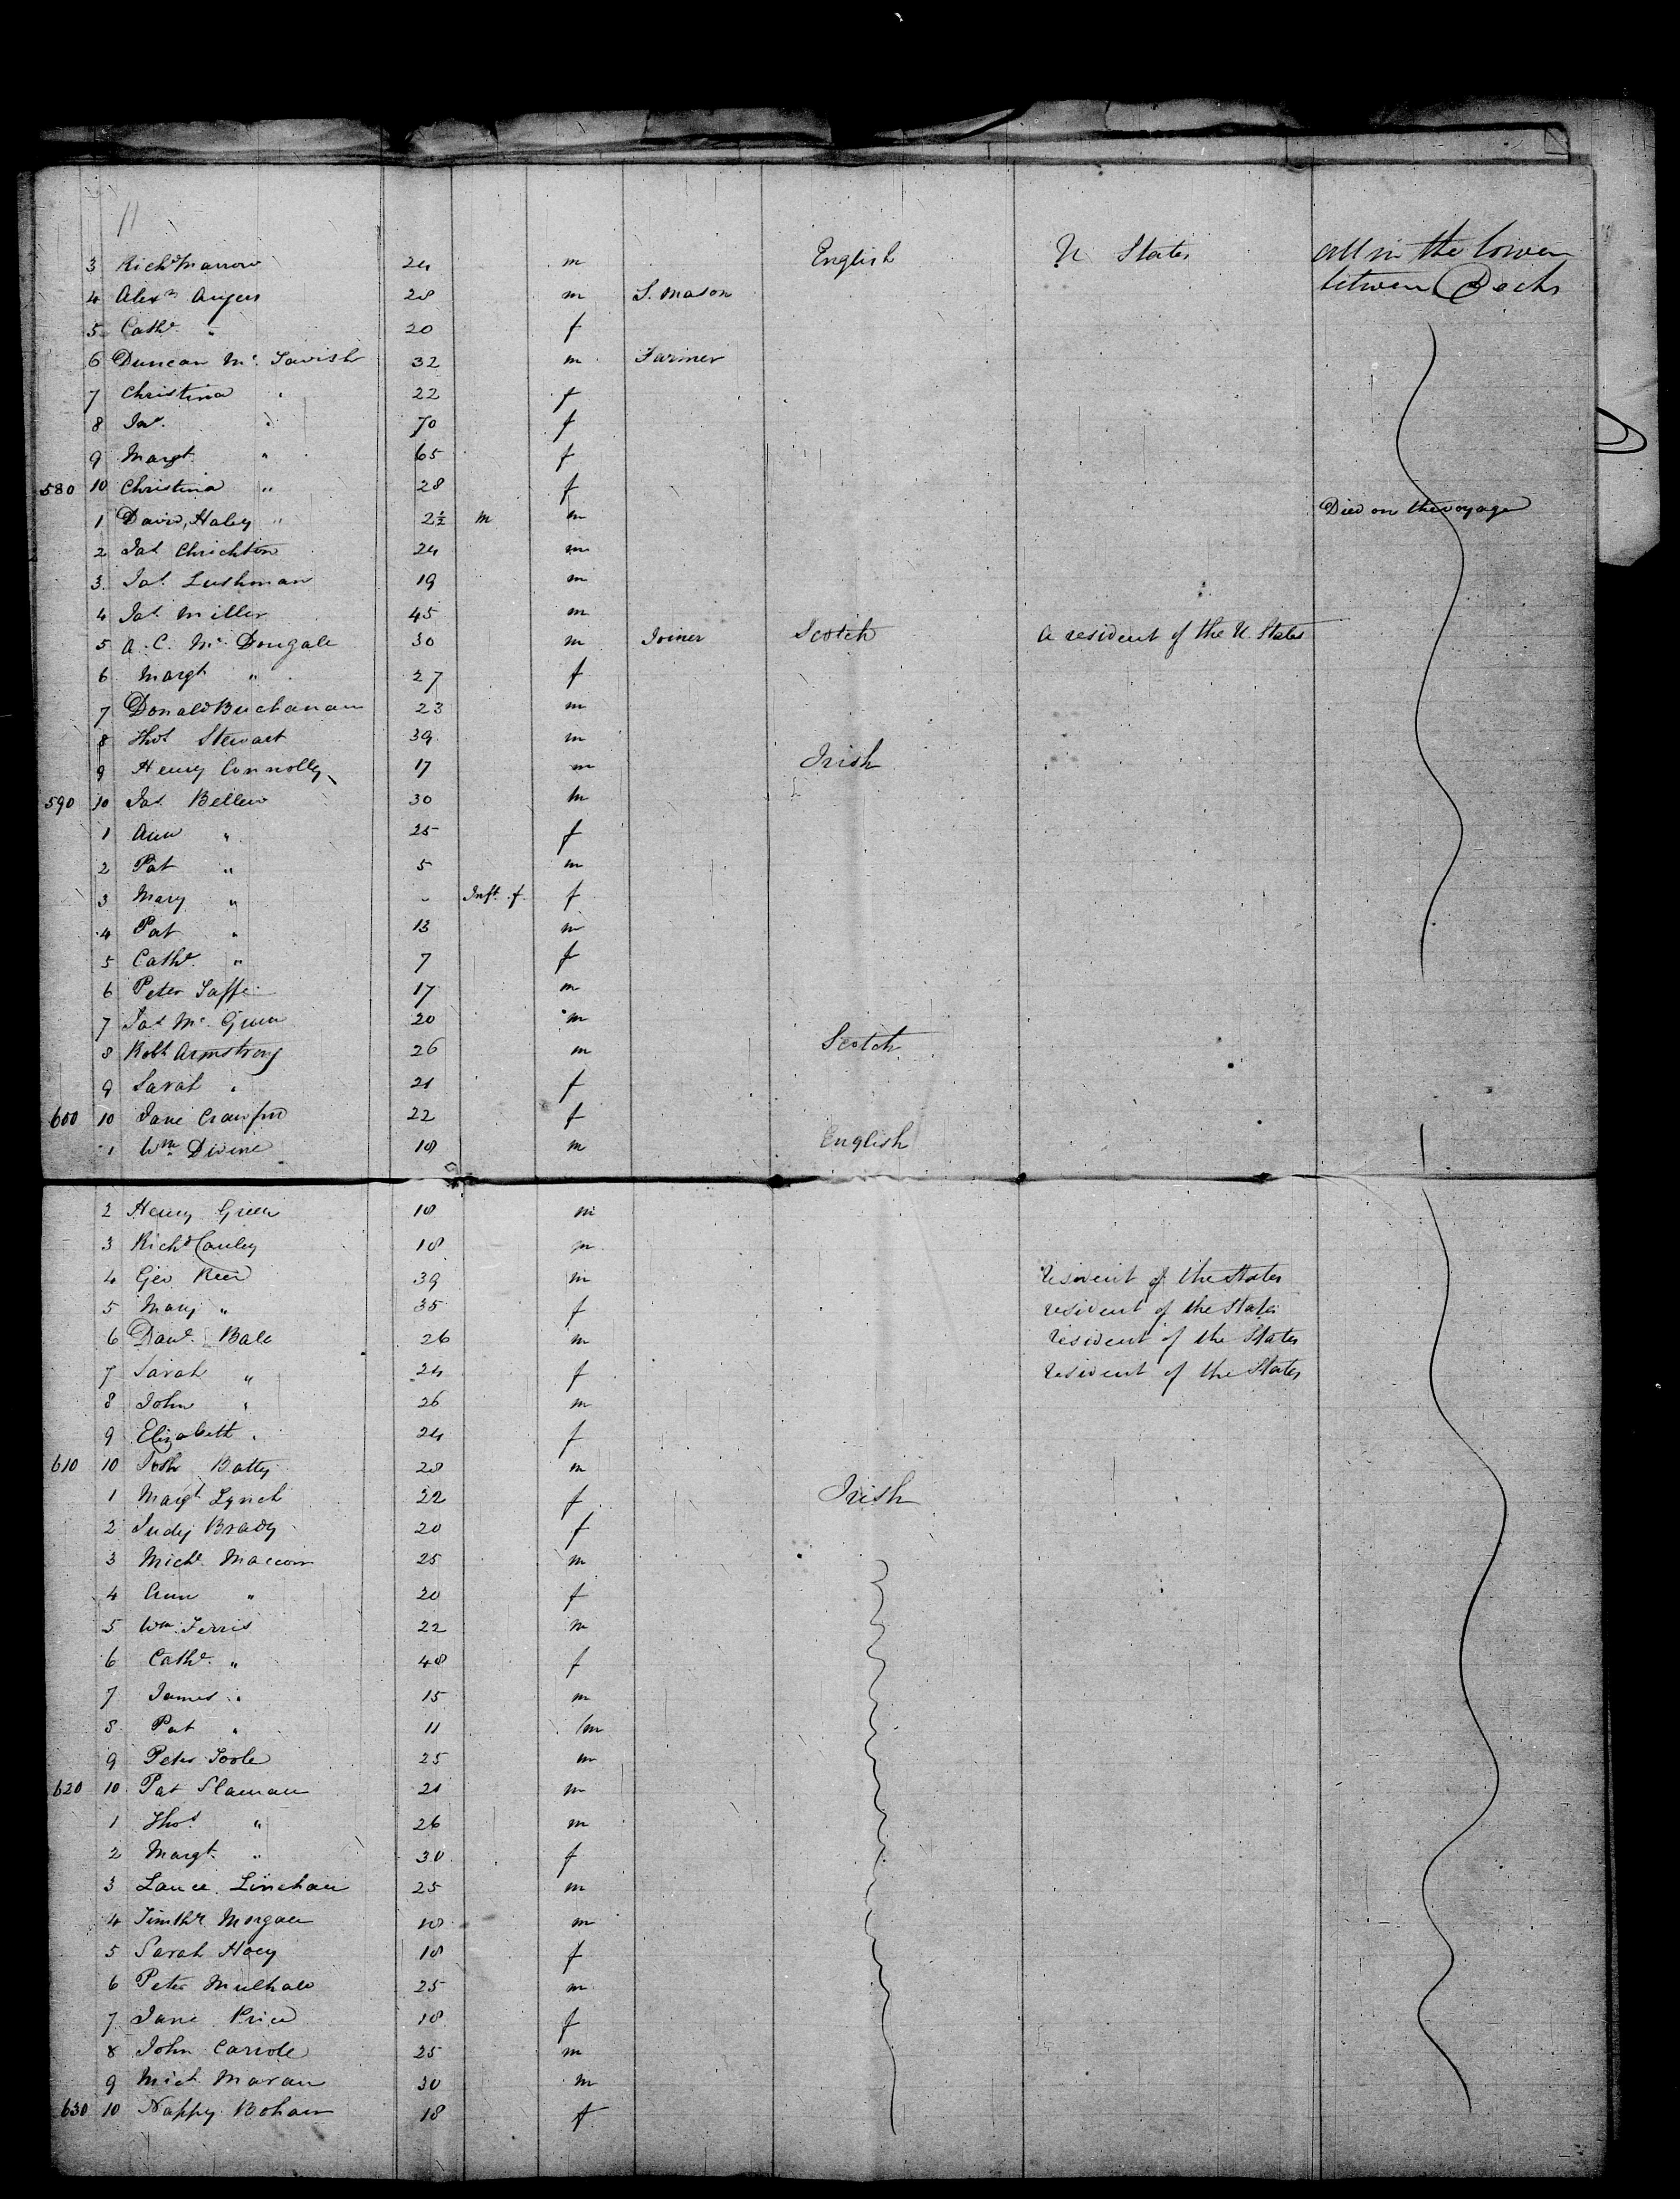 11
3 Richd Marrow 24 m English U States all in the lower
4 Alexr Angus 28 m S. Mason between Decks
5 Cathe " 20 f
6 Duncan Mc Tavish 32 m Farmer
7 Christina " 22 f
8 Jno. " 70 f
9 Margt " 65 f
580 10 Christina " 28 f
1 David, Haley " 2½ m m Died on the voyage
2 Jas Chrichton 24 m
3 Jas. Lushman 19 m
4 Jas Miller 45 m
5 A. C. Mc Dougale 30 m Joiner Scotch a resident of the U. States
6 Margt " 27 f
7 Donald Buchanan 23 m
8 Thos Stewart 39 m
9 Henry Connolly 17 m Irish
590 10 Jas. Bellew 30 m
1 Ann " 25 f
2 Pat " 5 m
3 Mary " - Inft. f. f
4 Pat " 13 m
5 Cathe " 7 f
6 Peter 17 m
7 Jas Mc 20 m
8 Robt Armstrong 26 m Scotch
9 Sarah " 21 f
600 10 Jane 22 f
1 Wm Divine 18 m English
2 Henry Green 18 m
3 Richd Cauley 18 m
4 Geo Reed 39 m resident of the States
5 Mary " 35 f resident of the States
6 Danl. Bale 26 m resident of the States
7 Sarah " 24 f resident of the States
8 John " 26 m
9 Elizabeth " 24 f
610 10 Josh Batty 28 m
1 Margt Lynch 22 f Irish
2 Judy Brady 20 f
3 Michl. 25 m
4 Ann " 20 f
5 Wm. Ferris 22 m
6 Cathe. " 48 f
7 James " 15 m
8 Pat " 11 m
9 Peter Toole 25 m
620 10 Pat Slaman 21 m
1 Thos " 26 m
2 Margt. " 30 f
3 Lance. Linehan 25 m
4 Timthy Morgan 18 m
5 Sarah Hoey 18 f
6 Peter Mulhall 25 m
7 Jane Price 18 f
8 John Carrole 25 m
9 Mich Maran 30 m
630 10 Nappy Bohan 18 f